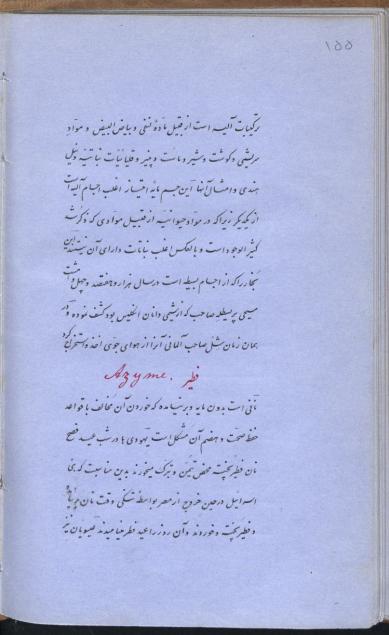 ۱۵۵
ترکیبات آلیه است از قبیل مادهٔ لنفی و بیاض البیض و مواد
سریشی و گوشت و شیر و ماست و پنیر و قلیائیات نباتیه و نیل
هندی و امثال آنها این جسم مایهٔ امتیاز اغلب اجسام آلیه است
از یکدیگر زیرا که در مواد حیوانیه از قبیل موادی که ذکر شد
کثیر الوجود است و بالعکس اغلب نباتات دارای آن نیستند این
بخار را که از اجسام بسیطه است در سال هزار و هفتصد و چهل و هشت
مسیحی پریستله صاحب که از شیمی دانان انگلیس بود کشف نموده و در
همان زمان شل صاحب آلمانی آنرا از هوای جوی اخذ و استخراج کرد
فطیر Azyme.
نانی است بدون مایه و بر نیامده که خوردن آن مخالف با قواعد
حفظ صحت و هضم آن مشکل است یهودی ها در شب عید فصح
نان فطیر پخت محض تیمن و تبرک میخورند بدین مناسبت که بنی
اسرائیل در حین خروج از مصر بواسطه تنگی وقت نان
و فطیر پخت و خوردند و آن روز را عید فطیر مینامیدند عیسویان نیز